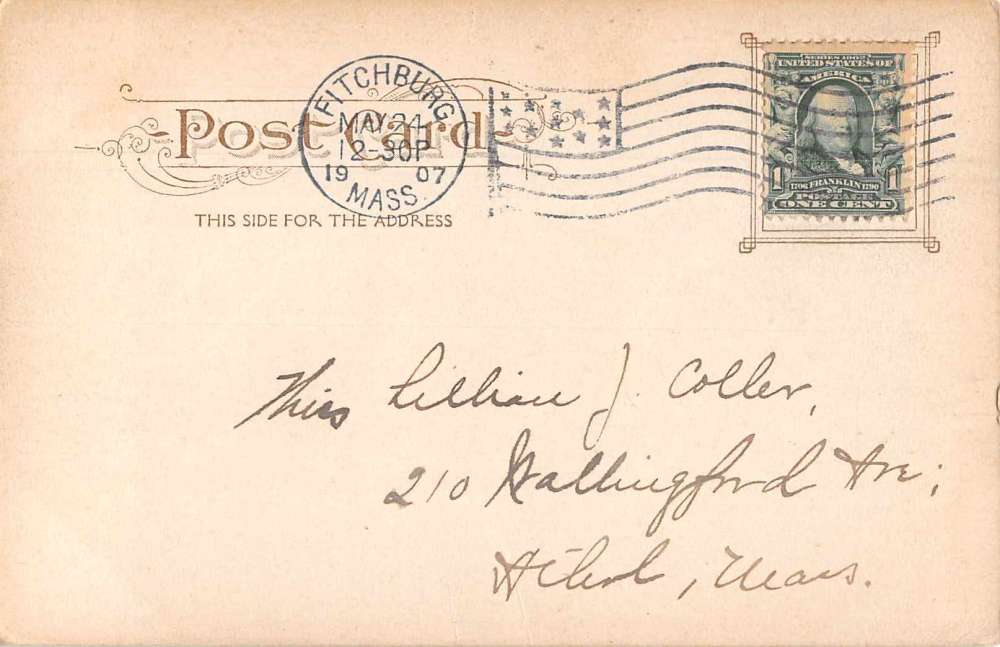 Post Card
THIS SIDE FOR THE ADDRESS
FITCHBURG
MAY 24
12-30P
19 07
MASS.
SERIES 1902
UNITED STATES OF
AMERICA
1 1
1706 FRANKLIN 1790
POSTAGE
ONE CENT
Miss Lillian J. Coller,
210 Wallingford Ave;
Athol, Mass.